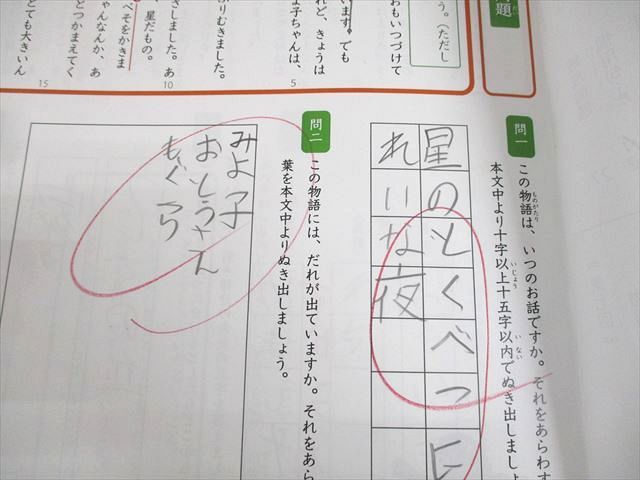 題
う。（ただし
おもいつづけて
います。でも
れど、きょうは
よ子ちゃんは、
5
りむきました。
さしました。あ
10
、星だもの。
べそをかきま
ゃんなんか、あ
とつかまえてく
とても大きいん
15
問一
この物語は、いつのお話ですか。それをあらわす
ものがたり
本文中より十字以上十五字以内でぬき出しましょ
いじょう
いない
星のとくべつに
れいな夜
問二
この物語には、だれが出ていますか。それをあら
葉を本文中よりぬき出しましょう。
みよ子
おとうさん
もぐら